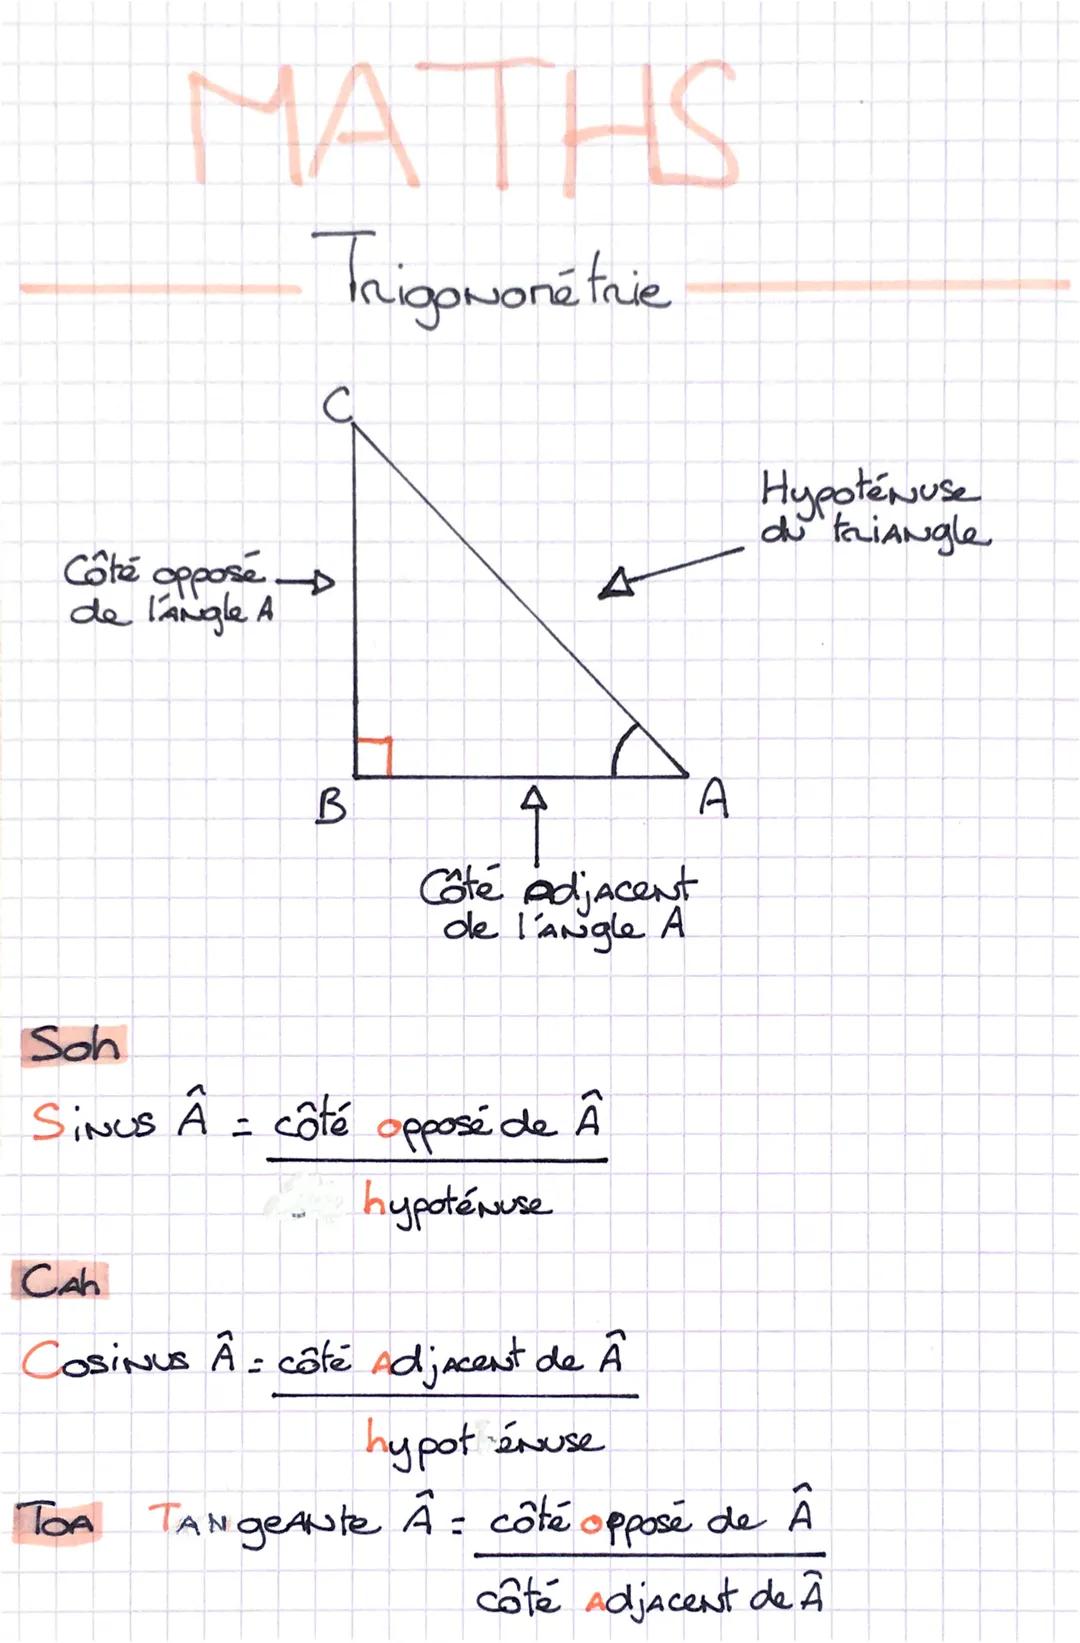 MATHS
Trigonométrie
C
Hypoténuse
du triangle
Côté opposé
de l'angle A
B
A
Côté adjacent
de l'angle A
Soh
Sinus Â = côté opposé de Â
hypoténuse
Cah
Cosinus Â = côté adjacent de Â
hypoténuse
TOA Tangeante Â = côté opposé de Â
côté adjacent de Â